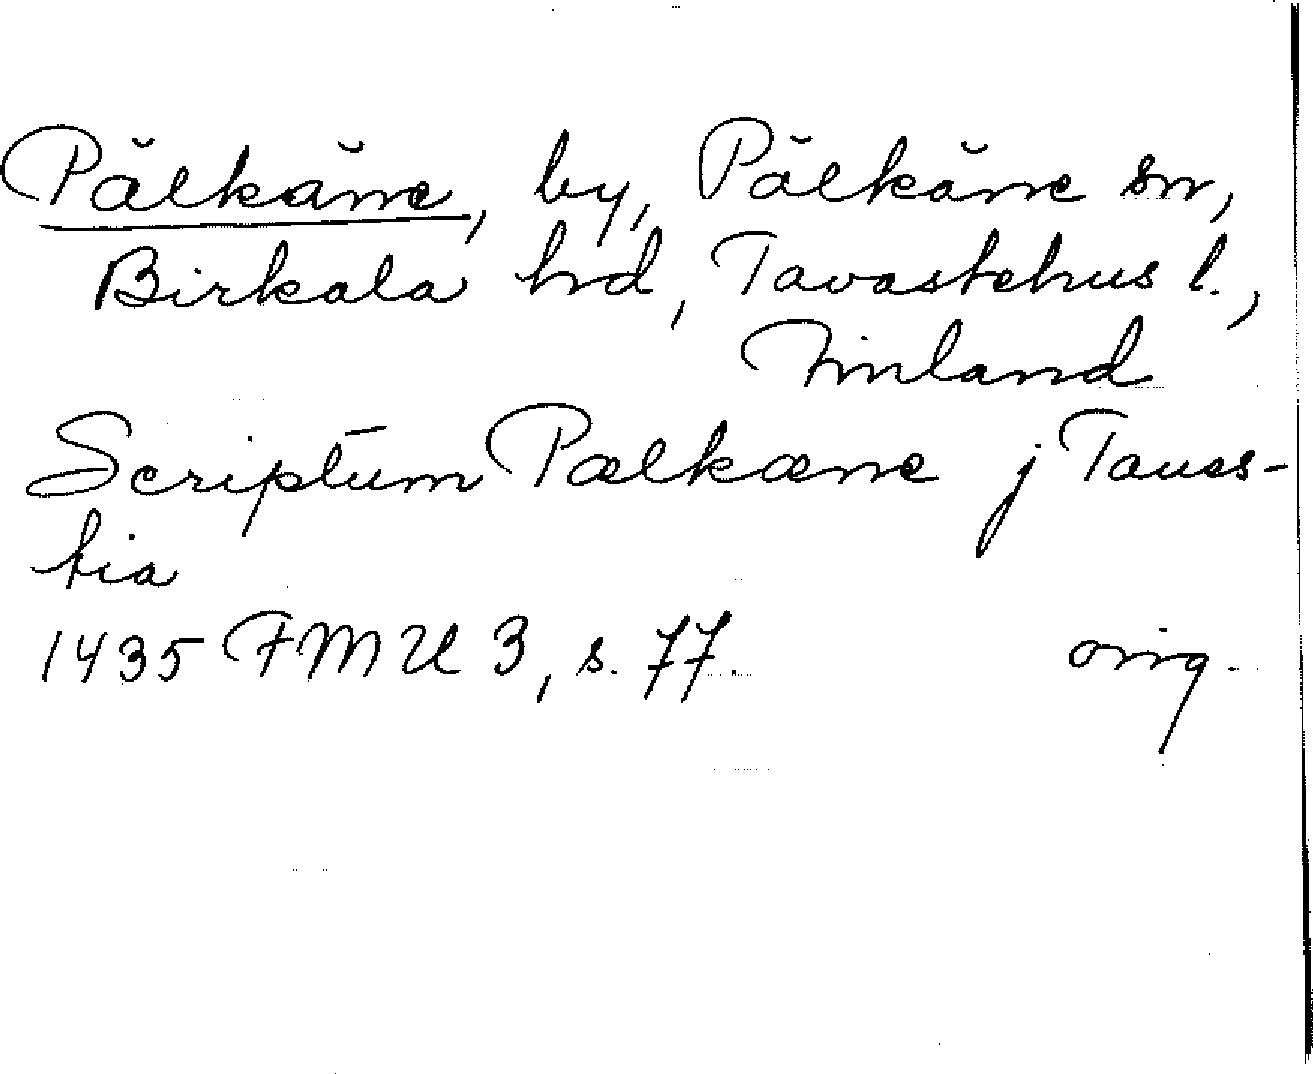 Pälkäne, by, Pälkäne sn,
Birkala hd, Tavastehus l.,
Finland
Scriptum Pælkæne j Taues-
tia
1435 FMU 3, s. 77. orig.